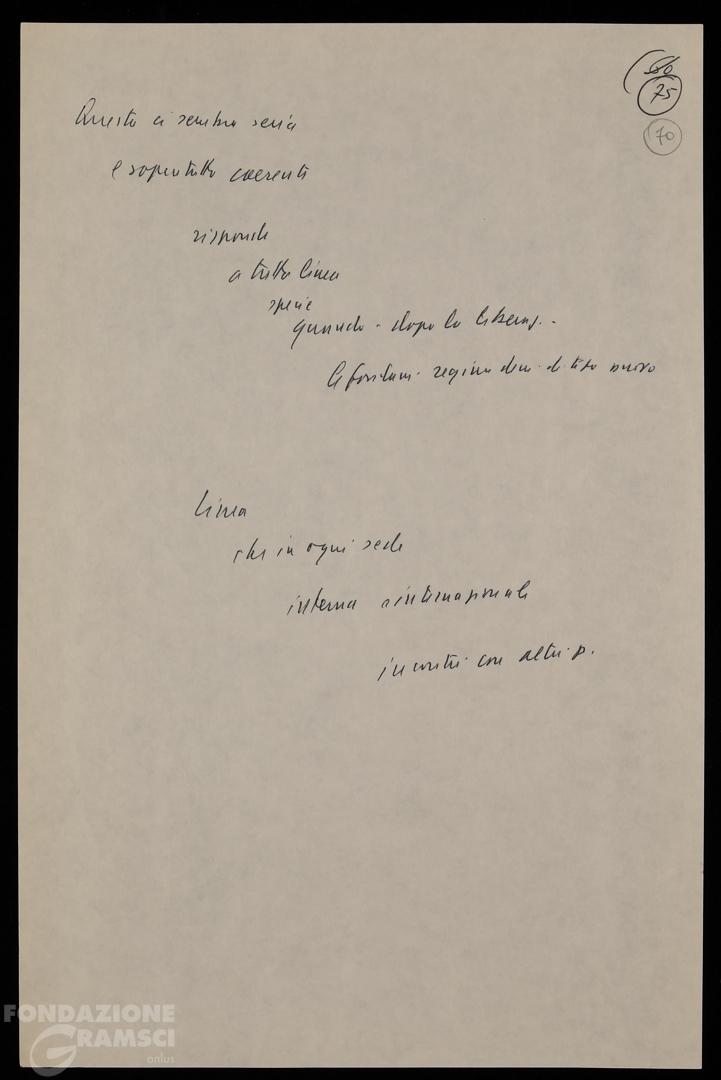 60
75
70
Questo ci sembra seria
e sopratutto coerente
risponde
a tutta linea
specie
quando - dopo la Liberaz. -
regime dem. di tipo nuovo
linea
che in ogni sede
interna e internazionale
incontri con altri p.
FONDAZIONE
GRAMSCI
onlus